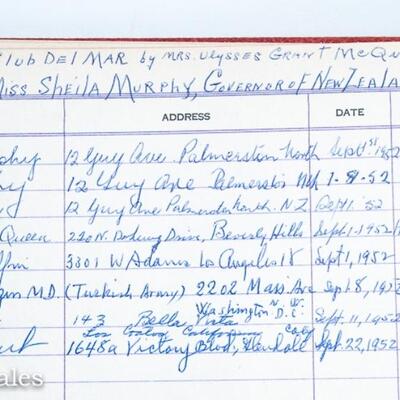 Club Del Mar by Mrs. Ulysses Grant McQu
Miss Sheila Murphy, Governor of New Zeala
ADDRESS DATE
phy 12 Guy Ave Palmerston North Sept 1st 1952
hy 12 Guy Ave Palmerston Nth 1-9-52
12 Guy Ave Palmerston North. N.Z Sept 1. '52
Queen 220 N. Drive, Beverly Hills Sept. 1-1952
ffin 3301 W Adams Los Angeles 18 Sept 1, 1952
M.D. (Turkish Army) 2202 Mass. Ave Sept 8, 1952
Washington N.W. D.C.
143 Bella Vista Sept. 11, 1952
Los Gatos California
1648a Victory Blvd, Glendale Sept. 22, 1952
ales